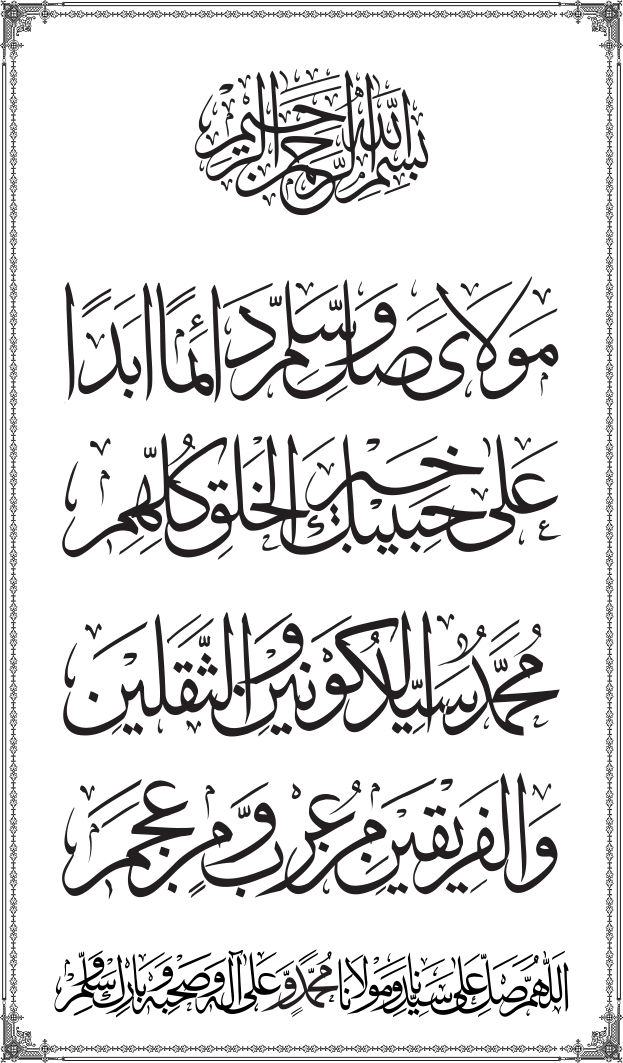 بِسْمِ اللّٰهِ الرَّحْمٰنِ الرَّحِيْمِ
مَوْلَايَ صَلِّ وَسَلِّمْ دَائِمًا اَبَدًا
عَلٰى حَبِيْبِكَ خَيْرِ الْخَلْقِ كُلِّهِمِ
مُحَمَّدٌ سَيِّدُ الْكَوْنَيْنِ وَالثَّقَلَيْنِ
وَالْفَرِيْقَيْنِ مِنْ عُرْبٍ وَّمِنْ عَجَمِ
اَللّٰهُمَّ صَلِّ عَلٰى سَيِّدِنَا وَمَوْلَانَا مُحَمَّدٍ وَّعَلٰى اٰلِهٖ وَصَحْبِهٖ وَبَارِكْ وَسَلِّمْ